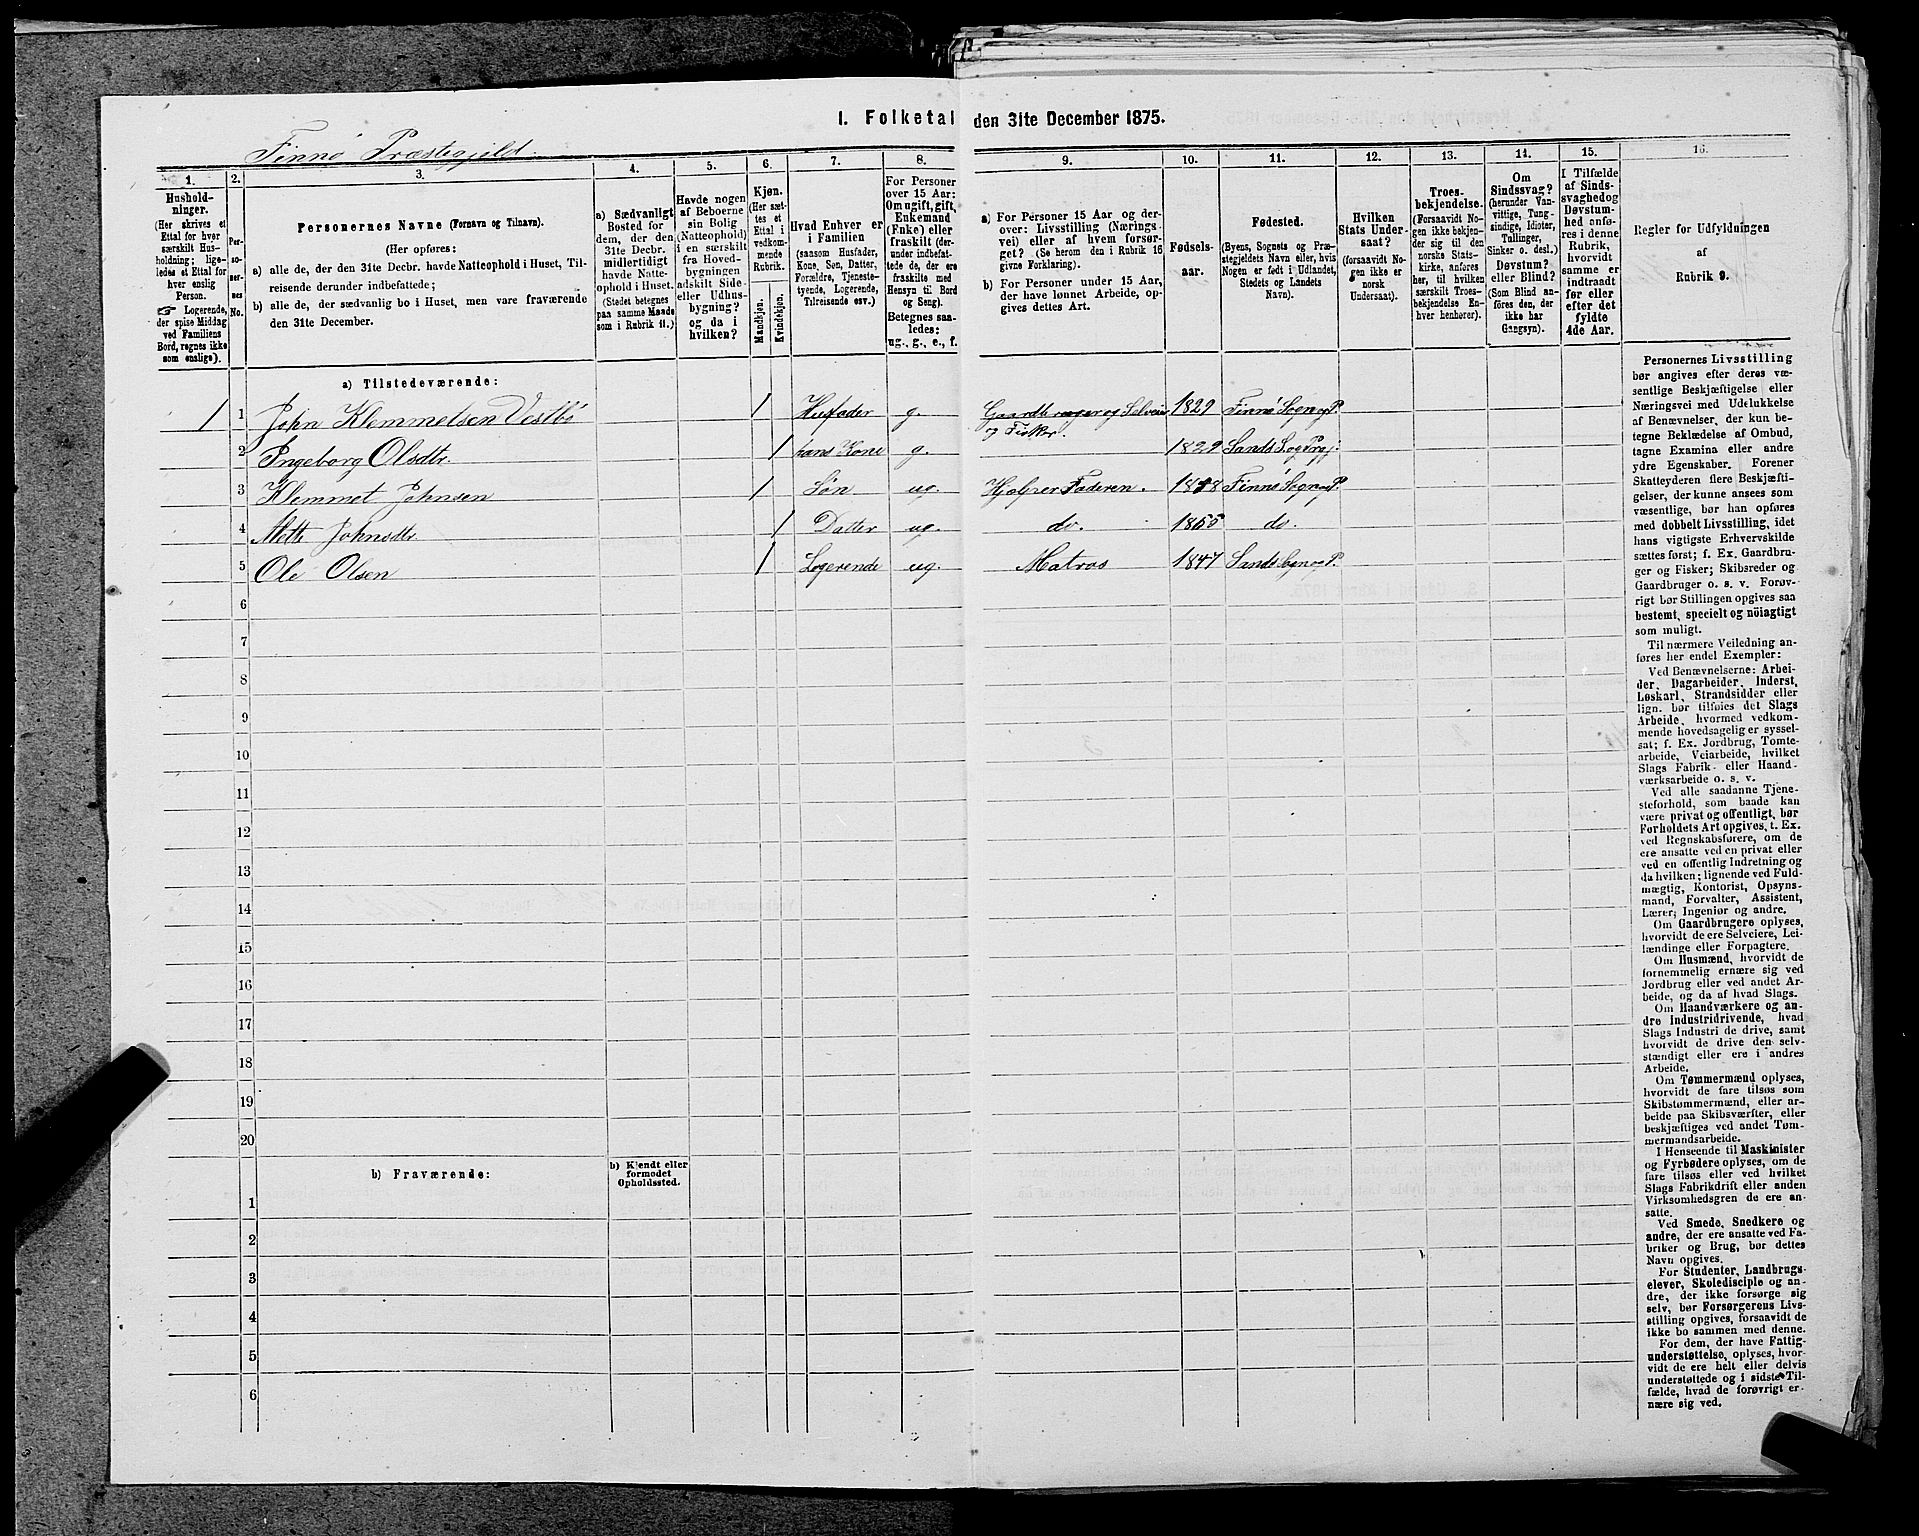 I. Folketal den 31te December 1875.
Finnø Præstegjeld.
1.
Husholdninger.
(Her skrives et
Ettal for hver
særskilt Husholdning; ligeledes et Ettal for
hver enslig
Person.
☞ Logerende,
der spise Middag
ved Familiens
Bord, regnes ikke
som enslige).
2.
Personernes
No.
3.
Personernes Navne (Fornavn og Tilnavn).
(Her opføres:
a) alle de, der den 31te Decbr. havde Natteophold i Huset, Tilreisende derunder indbefattede;
b) alle de, der sædvanlig bo i Huset, men vare fraværende
den 31te December.
4.
a) Sædvanligt
Bosted for
dem, der den
31te Decbr.
midlertidigt
havde Natteophold i Huset.
(Stedet betegnes
paa samme Maade
som i Rubrik 11.)
5.
Havde nogen
af Beboerne
sin Bolig
(Natteophold)
i en særskilt
fra Hovedbygningen
adskilt Side-
eller Udhusbygning?
og da i
hvilken?
6.
Kjøn.
(Her sættes et
Ettal i
vedkommende
Rubrik.
Mandkjøn.
Kvindekjøn.
7.
Hvad Enhver er
i Familien
(saasom Husfader,
Kone, Søn, Datter,
Forældre, Tjenestetyende, Logerende,
Tilreisende osv.)
8.
For Personer
over 15 Aar:
Om ugift, gift,
Enkemand
(Enke) eller
fraskilt (derunder indbefattede de, der ere
fraskilte med
Hensyn til Bord
og Seng).
Betegnes saaledes:
ug., g., e., f.
9.
a) For Personer 15 Aar og derover: Livsstilling (Næringsvei) eller af hvem forsørget? (Se herom den i Rubrik 16
givne Forklaring).
b) For Personer under 15 Aar,
der have lønnet Arbeide, opgives dettes Art.
10.
Fødselsaar.
11.
Fødested.
(Byens, Sognets og Præstegjeldets Navn eller, hvis
Nogen er født i Udlandet,
Stedets og Landets
Navn).
12.
Hvilken
Stats Undersaat?
(forsaavidt Nogen ikke er
norsk
Undersaat).
13.
Troesbekjendelse.
(Forsaavidt Nogen ikke bekjender sig til den
norske Statskirke, anføres
her, til hvilken
særskilt Troesbekjendelse Enhver henhører).
14.
Om
Sindssvag?
(herunder Vanvittige, Tungsindige, Idioter,
Tullinger,
Sinker o. desl.)
Døvstum?
eller Blind?
(Som Blind anføres den, der
ikke har
Gangsyn).
15.
I Tilfælde
af Sindssvaghed og
Døvstumhed anføres i denne
Rubrik,
hvorvidt
samme er
indtraadt
før eller
efter det
fyldte
4de Aar.
16.
Regler for Udfyldningen
af
Rubrik 9.
a) Tilstedeværende:
1 1 John Klemmetsen Vestbø 1 Husfader g. Gaardbruger og Selveier og Fisker. 1829 Finnø Sogn og P.
2 Ingeborg Olsdtr. 1 hans Kone g. 1829 Sands Sog Prgj:
3 Klemmet Johnsen 1 Søn ug. Hjælper Faderen. 1858 Finnø Sogn og P.
4 Mette Johnsdtr. 1 Datter ug. do. 1855 do.
5 Ole Olsen 1 Logerende ug. Matros 1847 Sands Sogn og P.
6
7
8
9
10
11
12
13
14
15
16
17
18
19
20
b) Fraværende:
b) Kjendt eller
formodet
Opholdssted.
1
2
3
4
5
6
Personernes Livsstilling
bør angives efter deres væsentlige Beskjæftigelse eller
Næringsvei med Udelukkelse
af Benævnelser, der kun betegne Beklædelse af Ombud,
tagne Examina eller andre
ydre Egenskaber. Forener
Skatteyderen flere Beskjæftigelser, der kunne ansees som
væsentlige, bør han opføres
med dobbelt Livsstilling, idet
hans vigtigste Erhvervskilde
sættes først; f. Ex. Gaardbruger og Fisker; Skibsreder og
Gaardbruger o. s. v. Forøvrigt bør Stillingen opgives saa
bestemt, specielt og nöiagtigt
som muligt.
Til nærmere Veiledning anføres her endel Exempler:
Ved Benævnelserne: Arbeider, Dagarbeider, Inderst,
Løskarl, Strandsidder eller
lign. bør tilføies det Slags
Arbeide, hvormed vedkommende hovedsagelig er sysselsat; f. Ex. Jordbrug, Tomtearbeide, Veiarbeide, hvilket
Slags Fabrik- eller Haandværksarbeide o. s. v.
Ved alle saadanne Tjenesteforhold, som baade kan
være privat og offentligt, bør
Forholdets Art opgives, t. Ex.
ved Regnskabsførere, om de
ere ansatte ved en privat eller
ved en offentlig Indretning og
da hvilken; lignende ved Fuldmægtig, Kontorist, Opsynsmand, Forvalter, Assistent,
Lærer; Ingeniør og andre.
Om Gaardbrugere oplyses,
hvorvidt de ere Selveiere, Leilændinge eller Forpagtere.
Om Husmænd, hvorvidt de
fornemmelig ernære sig ved
Jordbrug eller ved andet Arbeide, og da af hvad Slags.
Om Haandværkere og andre Industridrivende, hvad
Slags Industri de drive, samt
hvorvidt de drive den selvstændigt eller ere i andres
Arbeide.
Om Tømmermænd oplyses,
hvorvidt de fare tilsøs som
Skibstømmermænd, eller arbeide paa Skibsværfter, eller
beskjæftiges ved andet Tømmermandsarbeide.
I Henseende til Maskinister
og Fyrbødere oplyses, om de
fare tilsøs eller ved hvilket
Slags Fabrikdrift eller anden
Virksomhedsgren de ere ansatte.
Ved Smede, Snedkere og
andre, der ere ansatte ved Fabriker og Brug, bør dettes
Navn opgives.
For Studenter, Landbrugselever, Skoledisciple og andre, der ikke forsørge sig
selv, bør Forsørgerens Livsstilling opgives, forsaavidt de
ikke bo sammen med denne.
For dem, der have Fattigunderstøttelse, oplyses, hvorvidt de ere helt eller delvis
understøttede og i sidste Tilfælde, hvad de forøvrigt ernære sig ved.